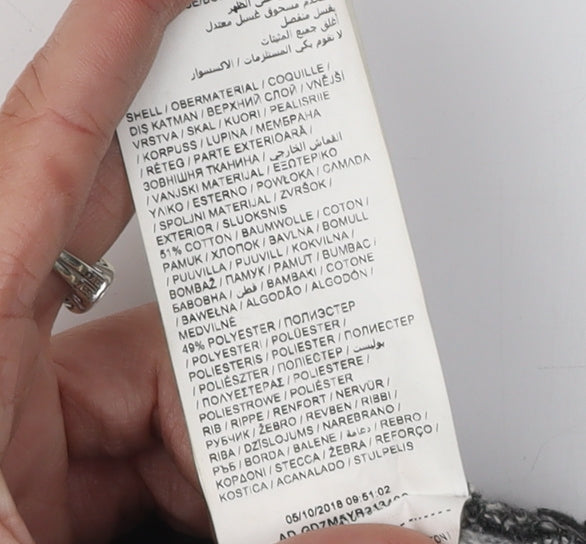 يغسل منفصل
أغلق جميع المثبتات
لا تقوم بكي المستلزمات / الاكسسوار
SHELL / OBERMATERIAL / COQUILLE /
DIŞ KATMAN / ВЕРХНИЙ СЛОЙ / VNĚJŠÍ
VRSTVA / SKAL / KUORI / PEALISRIIE
/ KORPUSS / LUPINA / МЕМБРАНА
/ RÉTEG / PARTE EXTERIOARĂ /
ЗОВНІШНЯ ТКАНИНА / القماش الخارجي
/ VANJSKI MATERIJAL / ΕΞΩΤΕΡΙΚΟ
ΥΛΙΚΟ / ESTERNO / POWŁOKA / CAMADA
/ SPOLJNI MATERIJAL / ZVRŠOK /
EXTERIOR / SLUOKSNIS
51% COTTON / BAUMWOLLE / COTON /
PAMUK / ХЛОПОК / BAVLNA / BOMULL
/ PUUVILLA / PUUVILL / KOKVILNA /
BOMBAŽ / ПАМУК / PAMUT / BUMBAC /
БАВОВНА / قطن / ΒΑΜΒΑΚΙ / COTONE
/ BAWEŁNA / ALGODÃO / ALGODÓN /
MEDVILNĖ
49% POLYESTER / ПОЛИЭСТЕР
/ POLYESTERI / POLÜESTER /
POLIESTERIS / POLIESTER / ПОЛИЕСТЕР
/ POLIÉSZTER / ПОЛІЕСТЕР / بوليستر
/ ΠΟΛΥΕΣΤΕΡΑΣ / POLIESTERE /
POLIESTROWE / POLIÉSTER
RIB / RIPPE / RENFORT / NERVÜR /
РУБЧИК / ŽEBRO / REVBEN / RIBBI /
RIBA / DZĪSLOJUMS / NAREBRANO /
РЪБ / BORDA / BALENE / دعامة / REBRO /
ΚΟΡΔΟΝΙ / STECCA / ŻEBRA / REFORÇO /
KOSTICA / ACANALADO / STULPELIS
05/10/2018 09:51:02